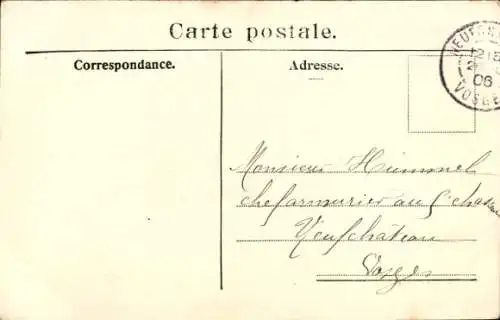 Carte postale.
Correspondance.
Adresse.
NEUFCH
12
06
VOSGE
Monsieur Hummel
chef armurier au 5e chasseurs
Neufchâteau
Vosges